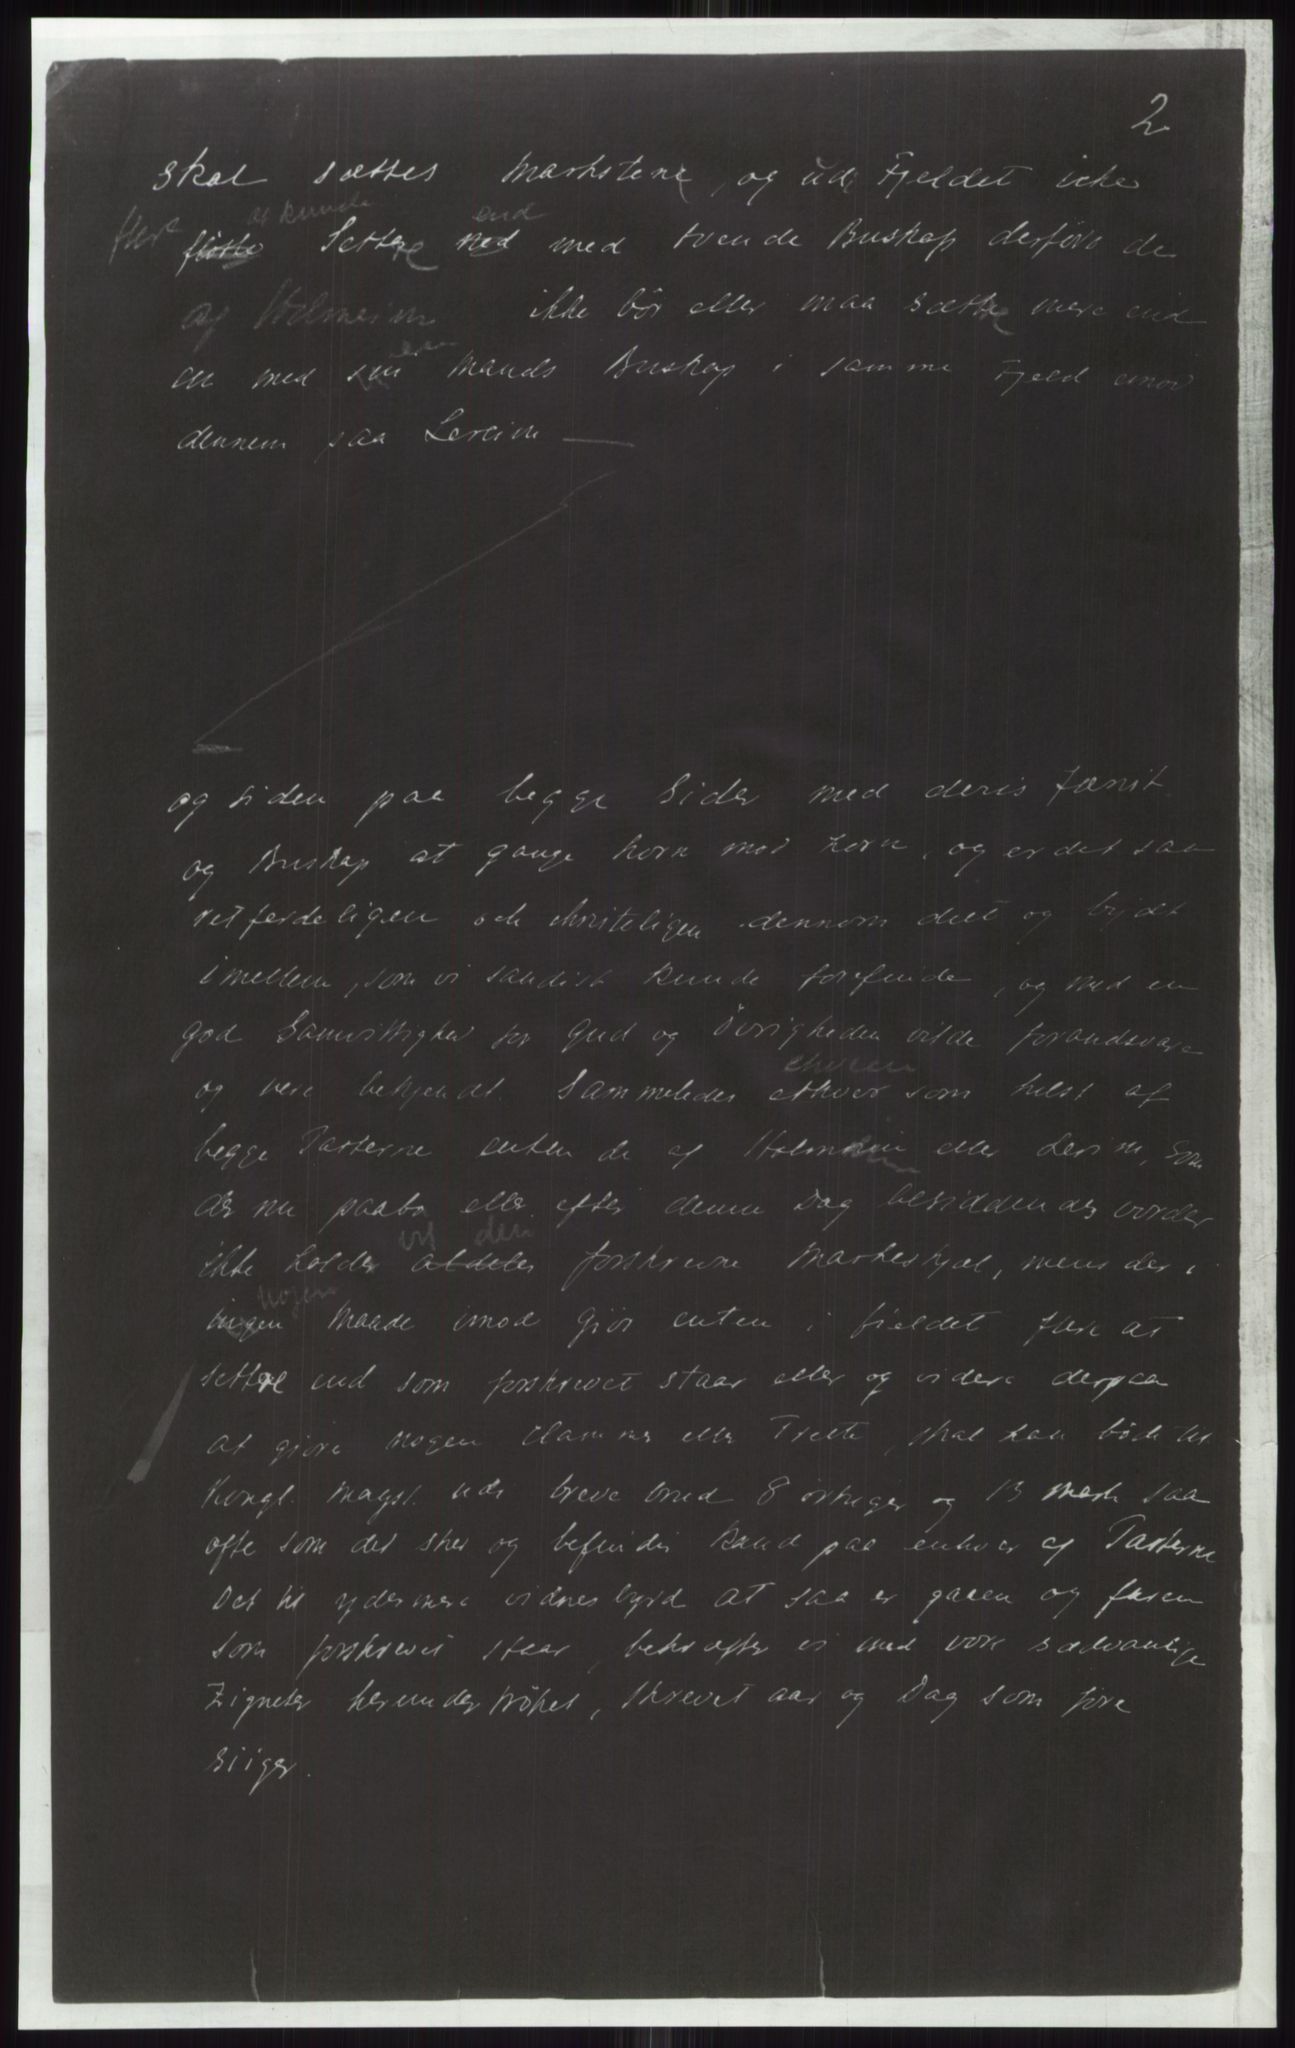 2
skal sættes Markstene, og udi Fjeldet icke
flere at kunde Settere end med tvende Buskap derfore de
af Holmeim ikke bör eller maa Sættre mere end
en med en Mands Buskap i samme Fjeld imod
dennem paa Lereim
og siden paa begge Sider med deris Fænit
og Buskap at gange horn mod horn, og er det saa
retferdeligen och christeligen dennom delt og bydt
imellem, som vi sandist kunde forefinde, og med en
god Samvittighed for Gud og Övrigheden vilde forandsvare
og vere bekjendt. Sammeledes ehvem som helst af
begge Parterne enten de af Holmeim eller Lereim, som
der nu paabo eller efter denne Dag besiddendes vorder
ikke holder vid den forskrevne Markeskjel, mens der i
nogen Maade imod giör enten i fieldet flere at
settere end som forskrevet staar eller og videre derpaa
at giöre nogen Klammer eller Trette, skal han böde til
Kongl. Mayst. udi breve brud 8 örtuger og 13 mark saa
ofte som det sker og befindes kand paa enhver af Parterne
Det til ydermere vidnesbyrd at saa er gaaen og faren
som forskrevet staar, bekrefter vi med vore sædvanlige
Zigneter herunder tröket, skrevet aar og Dag som före
siiger.